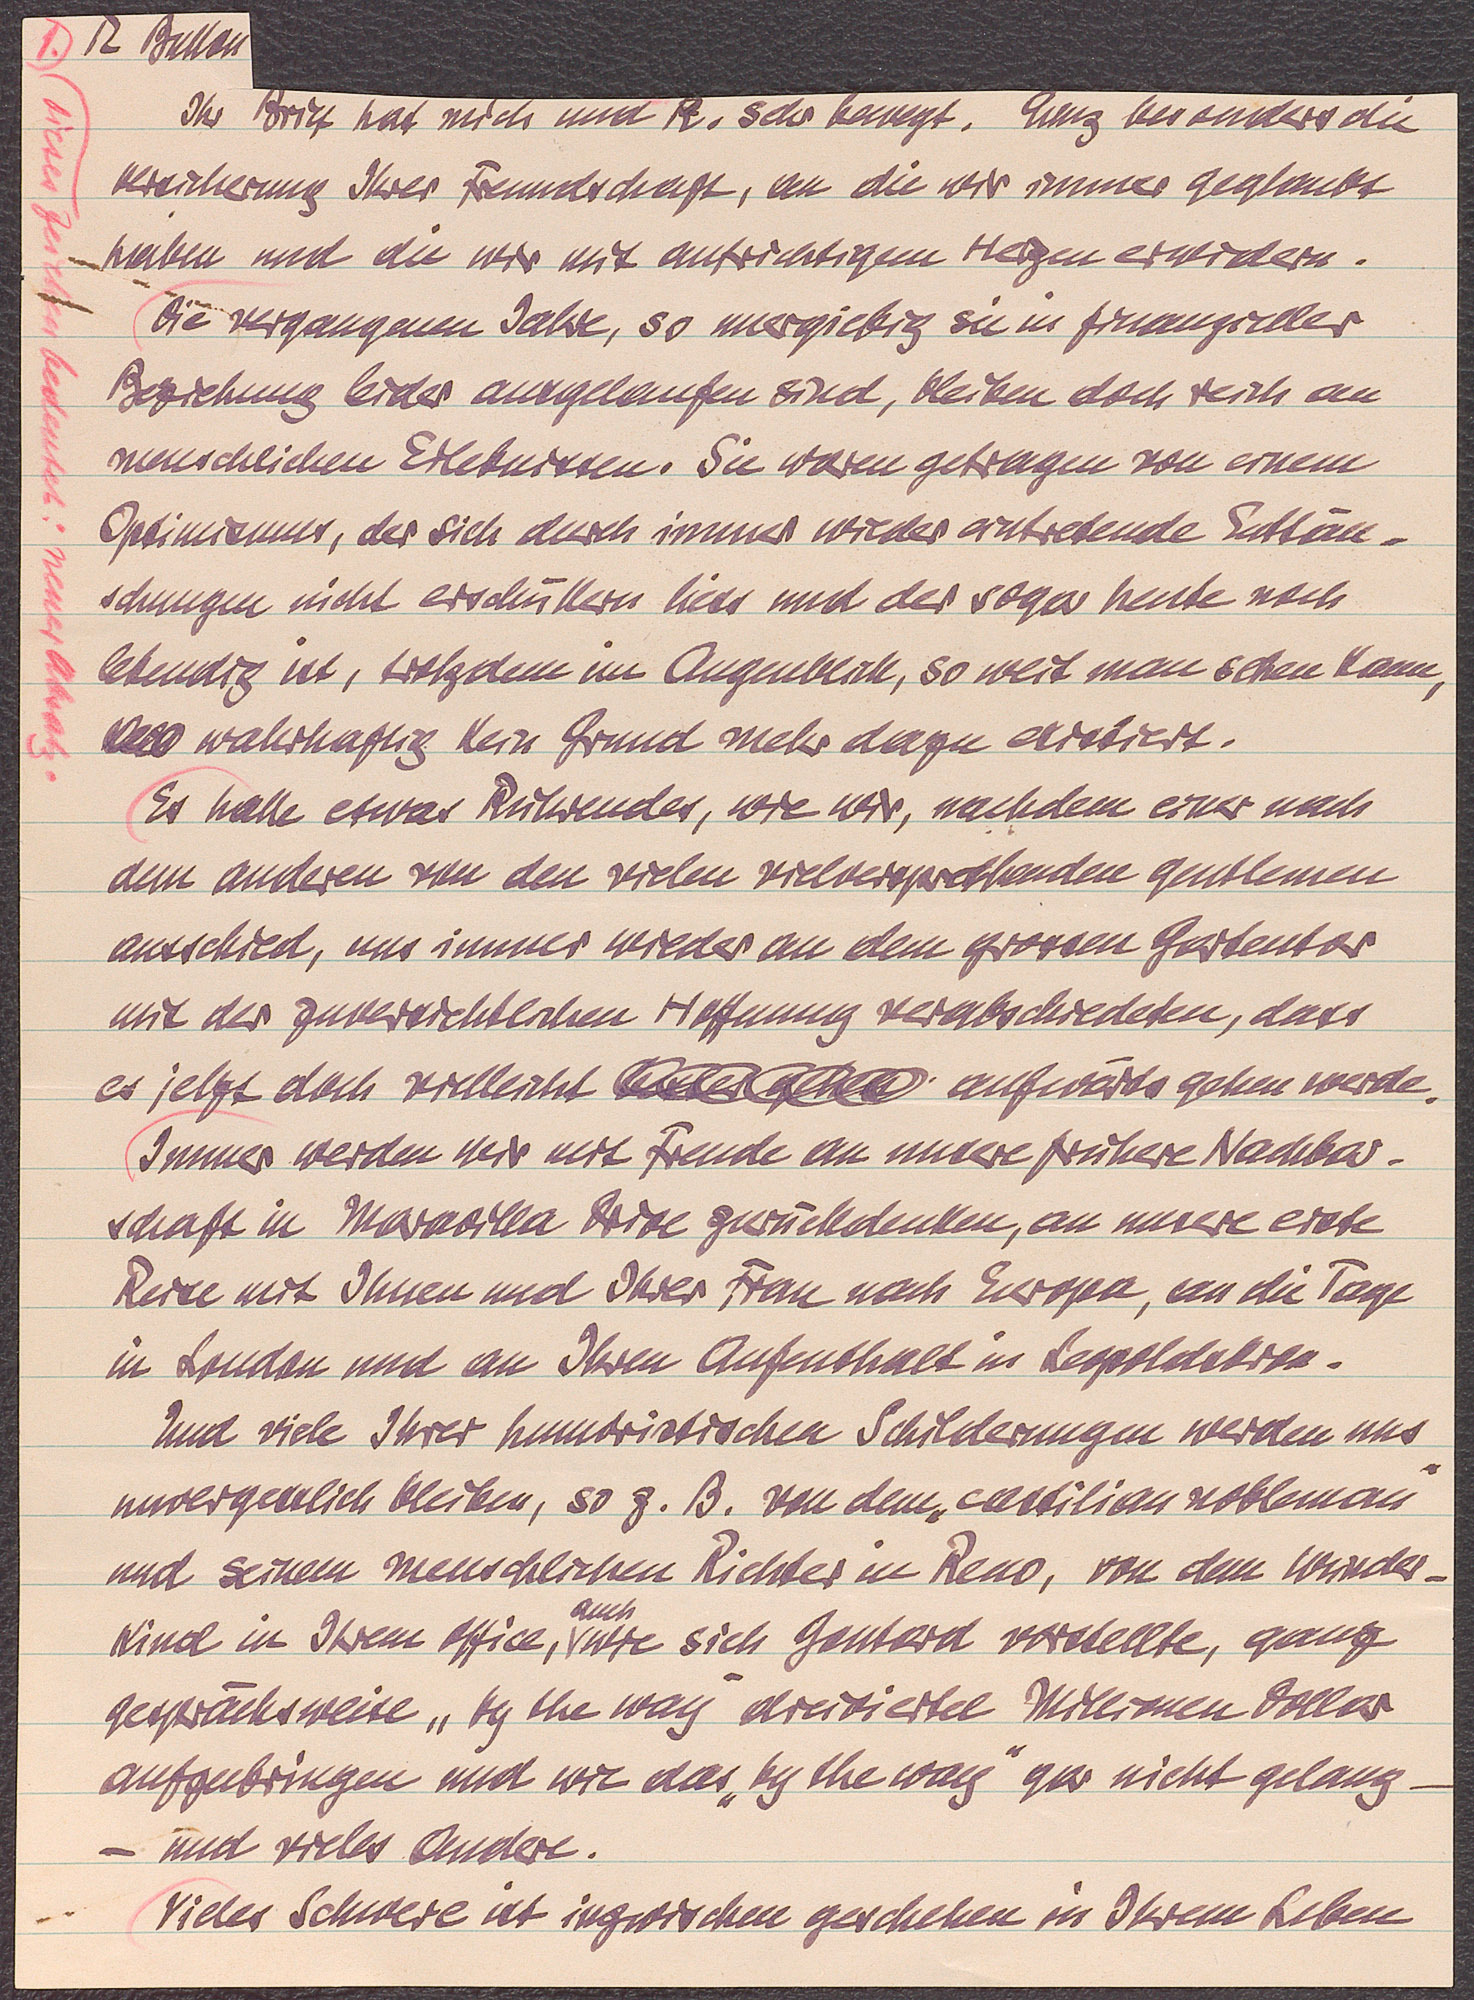 1.) R Button
dieses Zeichen bedeutet: neuer Absatz.
Ihr Brief hat mich und R. sehr bewegt. Ganz besonders die
Versicherung Ihrer Freundschaft, an die wir immer geglaubt
haben und die wir mit aufrichtigem Herzen erwidern.
Die vergangenen Jahre, so unergiebig sie in finanzieller
Beziehung leider ausgelaufen sind, bleiben doch reich an
menschlichen Erlebnissen. Sie waren getragen von einem
Optimismus, der sich durch immer wieder eintretende Enttäu-
schungen nicht erschüttern liess und der sogar heute noch
lebendig ist, trotzdem im Augenblick, so weit man sehen kann,
wahrhaftig kein Grund mehr dazu existiert.
Es hatte etwas Rührendes, wie wir, nachdem einer nach
dem anderen von den vielen vielversprechenden gentlemen
ausschied, uns immer wieder an dem grossen Gartentor
mit der zuversichtlichen Hoffnung verabschiedeten, dass
es jetzt doch vielleicht aufwärts gehen werde.
Immer werden wir mit Freude an unsere frühere Nachbar-
schaft in Maravilla Drive zurückdenken, an unsere erste
Reise mit Ihnen und Ihrer Frau nach Europa, an die Tage
in London und an Ihren Aufenthalt in Leopoldskron.
Und viele Ihrer humoristischen Schilderungen werden uns
unvergesslich bleiben, so z. B. von dem „castilian nobleman"
und seinem menschlichen Richter in Reno, von dem Wunder-
kind in Ihrem office, auch wie sich Gontard vorstellte, ganz
gesprächsweise „by the way" dreiviertel Millionen Dollar
aufzubringen und wie das „by the way" gar nicht gelang –
– und vieles Andere.
Vieles Schwere ist inzwischen geschehen in Ihrem Leben